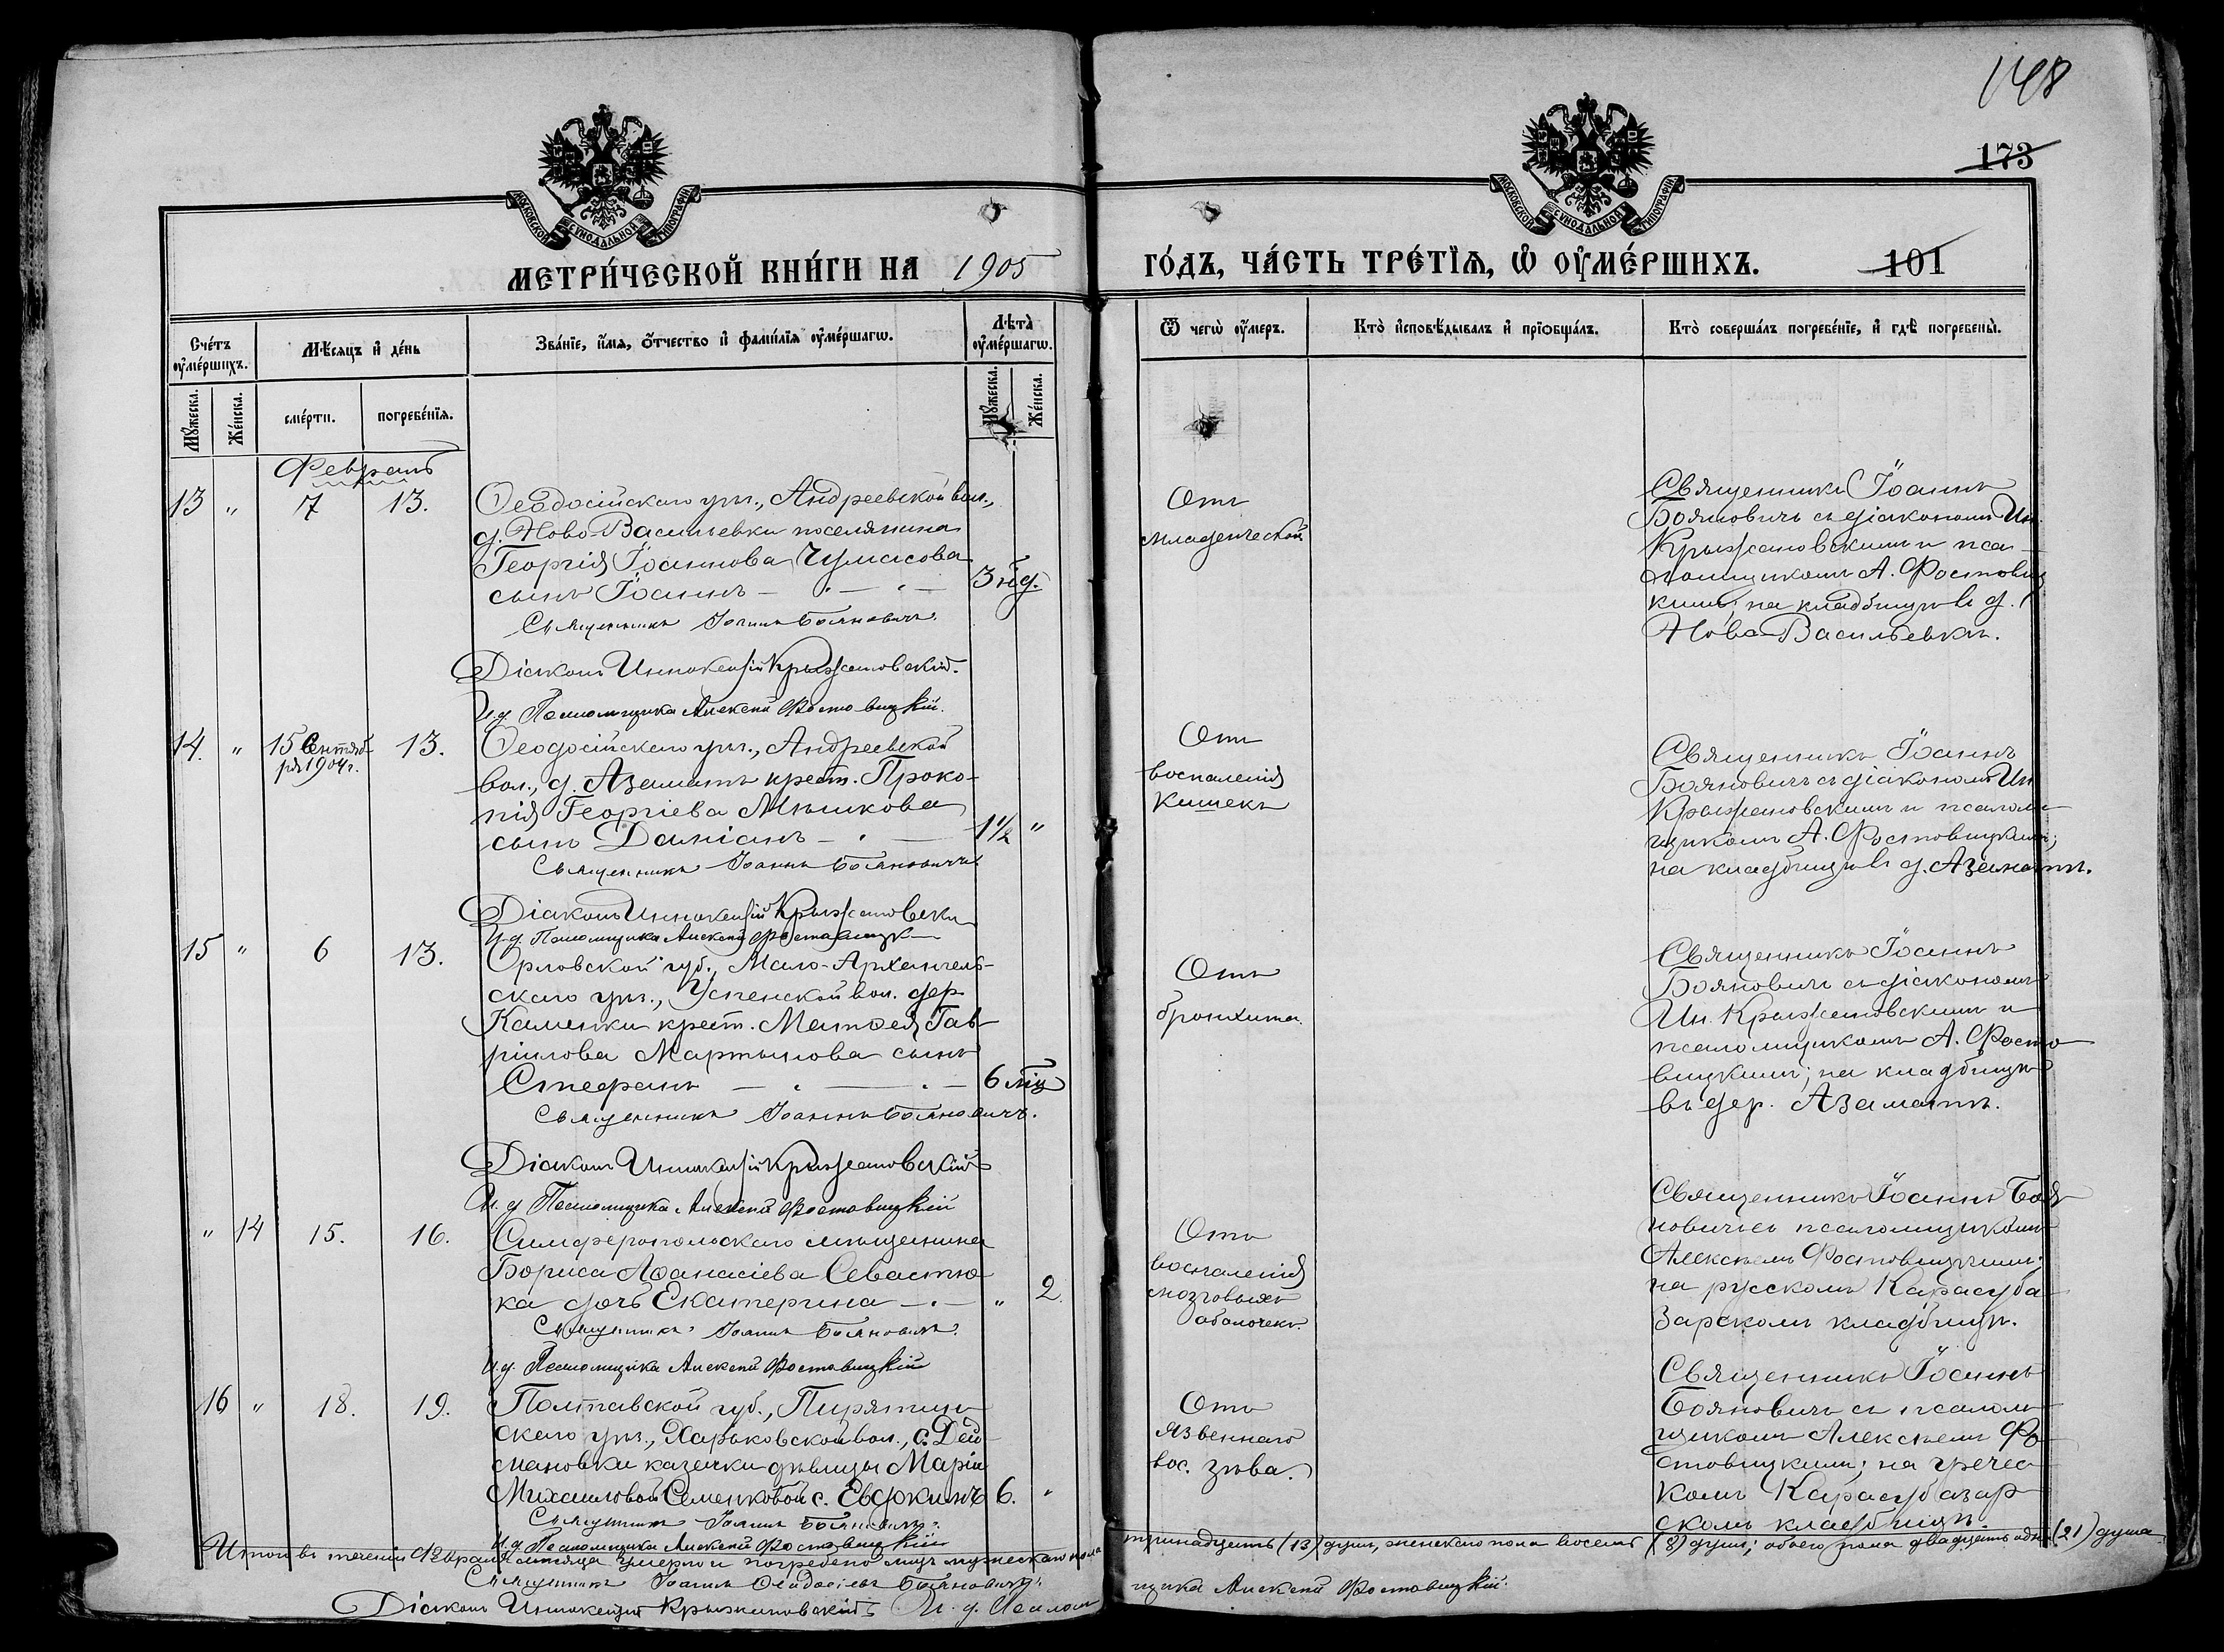 148
173
МОСКОВСКОЙ СѴНОДАЛЬНОЙ ТИПОГРАФІИ
МОСКОВСКОЙ СѴНОДАЛЬНОЙ ТИПОГРАФІИ
МЕТРИ́ЧЕСКОЙ КНИ́ГИ НА 1905
ГО́ДЪ, ЧА́СТЬ ТРЕ́ТЇѦ, Ѡ҆ ОУ҆МЕ́РШИХЪ.
101
Сче́тъ оу҆ме́ршихъ.
Мѣ́сяцъ и҆ де́нь
Зва́нїе, и҆́мѧ, ѻ҆́тчество и҆ фамилїѧ оу҆ме́ршагѡ.
Лѣ́та оу҆ме́ршагѡ.
Мꙋ́жеска.
Же́нска.
сме́рти.
погребе́нїѧ.
Мꙋ́жеска.
Же́нска.
Ѿ чегѡ̀ оу҆́меръ.
Кто̀ и҆сповѣ́дывалъ и҆ прїѻбща́лъ.
Кто̀ соверша́лъ погребе́нїе, и҆ гдѣ̀ погребены̀.
Февраль
13 " 7 13.
Ѳеодосійскаго уѣз., Андреевской вол.,
д. Ново-Васильевки поселянина
Георгія Іоаннова Чумасова
сынъ Іоаннъ — 3 нд.
Священникъ Іоаннъ Бояновичъ.
Діаконъ Иннокентій Крыжановскій.
И. д. Псаломщика Алексѣй Фостовицкій.
Отъ
младенческой
Священникъ Іоаннъ
Бояновичъ съ діакономъ Ин.
Крыжановскимъ и пса-
ломщикомъ А. Фостовиц
кимъ; на кладбищѣ въ д.
Ново-Васильевкѣ.
14. " 15 Сентяб-
ря 1904 г. 13.
Ѳеодосійскаго уѣз., Андреевской
вол., д. Азаматъ крест. Проко-
пія Георгіева Мѣшкова
сынъ Даміанъ — 1½ "
Священникъ Іоаннъ Бояновичъ
Діаконъ Иннокентій Крыжановски
И. д. Псаломщика Алексѣй Фостовицк
Отъ
воспаленія
кишекъ
Священникъ Іоаннъ
Бояновичъ съ діакономъ Ин
Крыжановскимъ и псалом
щикомъ А. Фостовицкимъ;
на кладбищѣ въ д. Азаматъ.
15 " 6 13.
Орловской губ., Мало-Архангель-
скаго уѣз., Успенской вол. дер
Каменки крест. Матѳея Гав
ріилова Мартынова сынъ
Стефанъ — 6 мц
Священникъ Іоаннъ Бояновичъ.
Діаконъ Иннокентій Крыжановскій
И. д. Псаломщика Алексѣй Фостовицкій
Отъ
бронхита.
Священникъ Іоаннъ
Бояновичъ съ діакономъ
Ин. Крыжановскимъ и
псаломщикомъ А. Фосто
вицкимъ; на кладбищѣ
въ дер. Азаматъ.
" 14 15. 16.
Симферопольскаго мѣщанина
Бориса Аѳанасіева Севастю
ка дочь Екатерина — " 2.
Священникъ Іоаннъ Бояновичъ.
И. д. Псаломщика Алексѣй Фостовицкій
Отъ
воспаленія
мозговыхъ
оболочекъ.
Священникъ Іоаннъ Боя
новичъ съ псаломщикомъ
Алексѣемъ Фостовицкимъ;
на русскомъ Карасуба
зарскомъ кладбищѣ.
16 " 18. 19.
Полтавской губ., Пирятин
скаго уѣз., Харьковской вол., с. Дей
мановки казачки дѣвицы Маріи
Михаиловой Семенковой с. Евфкимъ 6. "
Священникъ Іоаннъ Бояновичъ.
И. д. Псаломщика Алексѣй Фостовицкій
Отъ
язвеннаго
вос. зѣва.
Священникъ Іоаннъ
Бояновичъ съ псалом
щикомъ Алексѣемъ Фо
стовицкимъ; на гречес
комъ Карасубазар
скомъ кладбищѣ.
Итого въ теченіи Февраля мѣсяца умерло и погребено лицъ мужескаго пола тринадцать (13) душъ, женскаго пола восемь (8) душъ; обоего пола двадцать одна (21) душа
Священникъ Іоаннъ Ѳеодосіевъ Бояновичъ.
Діаконъ Иннокентій Крыжановскій И. д. Псалом
щика Алексѣй Фостовицкій.